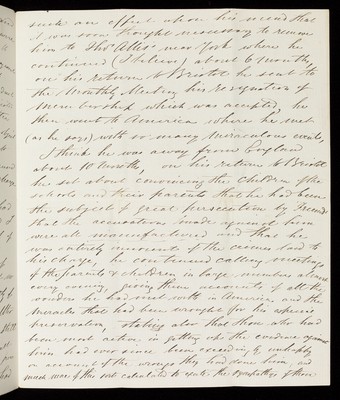 such an effect upon his mind that
it was soon thought necessary to remove
him to Thos Allis's near York where he
continued (I believe) about 6 months,
on his return to Bristol he sent to
the Monthly Meeting his resignation of
Membership which was accepted, he
then went to America where he met
(as he says) with so many miraculous events,
I think he was away from England
about 10 months, on his return to Bristol
he set about convincing the children of the
schools and their parents that he had been
the subject of great persecution by Friends
that the accusations made against him
were all manufactured and that he
was entirely innocent of the crimes laid to
his charge, he continued calling meetings
of the parents & children in large numbers almost
every evening, giving them accounts of all the
wonders he had met with in America and the
miracles that had been wrought for his especial
preservation, stating also that those who had
been most active in getting up the evidence against
him had ever since been exceedingly unhappy
on account of the wrongs they had done him, and
much more of this sort calculated to excite the sympathies of those